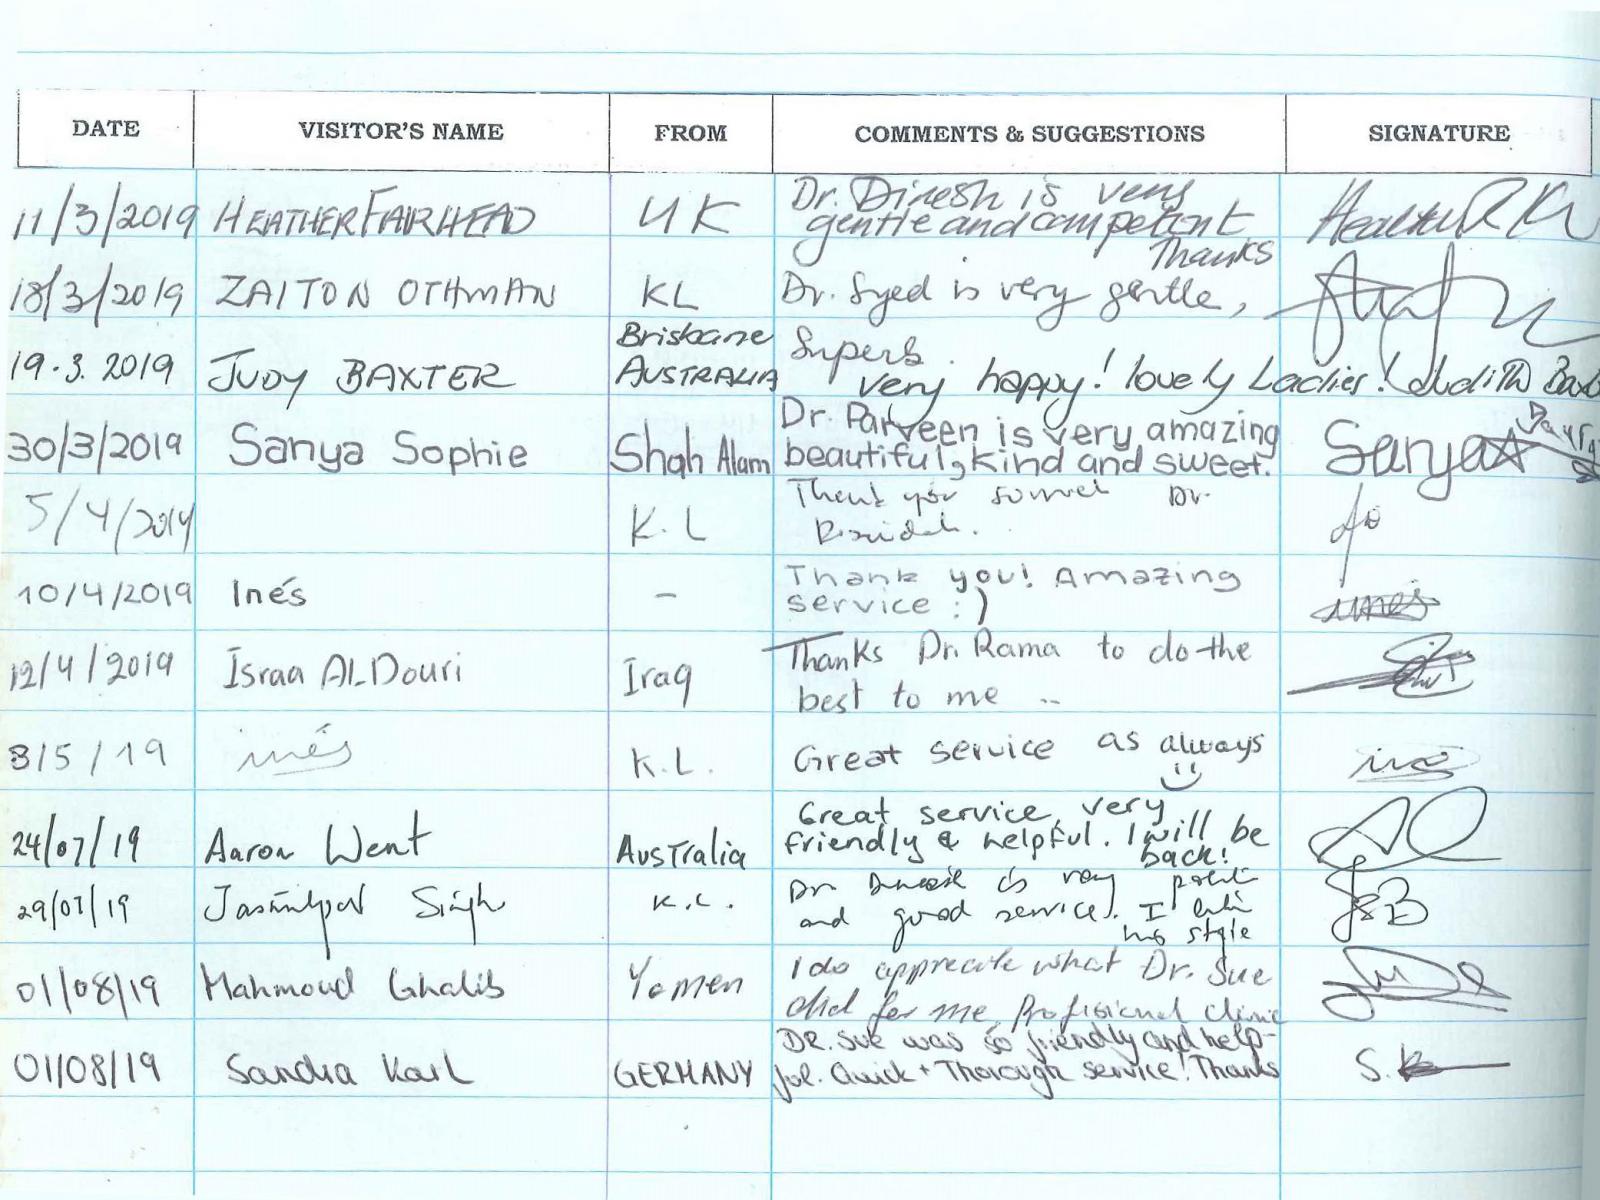 DATE VISITOR'S NAME FROM COMMENTS & SUGGESTIONS SIGNATURE
11/3/2019 HEATHER FAIRHEAD UK Dr. Dinesh is very
gentle and competent
Thanks
18/3/2019 ZAITON OTHMAN KL Dr. Syed is very gentle,
Superb.
19.3.2019 JUDY BAXTER Brisbane
AUSTRALIA very happy! lovely Ladies! Judith
30/3/2019 Sanya Sophie Shah Alam Dr. Parveen is very amazing
beautiful, kind and sweet. Sanya
5/4/2019 K.L Thank you Dr.
10/4/2019 Inés - Thank you! Amazing
service :)
12/4/2019 Israa ALDouri Iraq Thanks Dr. Rama to do the
best to me ..
3/5/19 inés K.L. Great service as always
24/07/19 Aaron Went Australia Great service, very
friendly & helpful. I will be
back!
29/07/19 Singh K.L. Dr is very
and good service. I
his style
01/08/19 Mahmoud Ghalib Yemen I do apprecate what Dr. Sue
did for me, Profisional clinic
01/08/19 Sandra Karl GERMANY DR. Sue was so friendly and help-
ful. Quick + Thorough service! Thanks S.